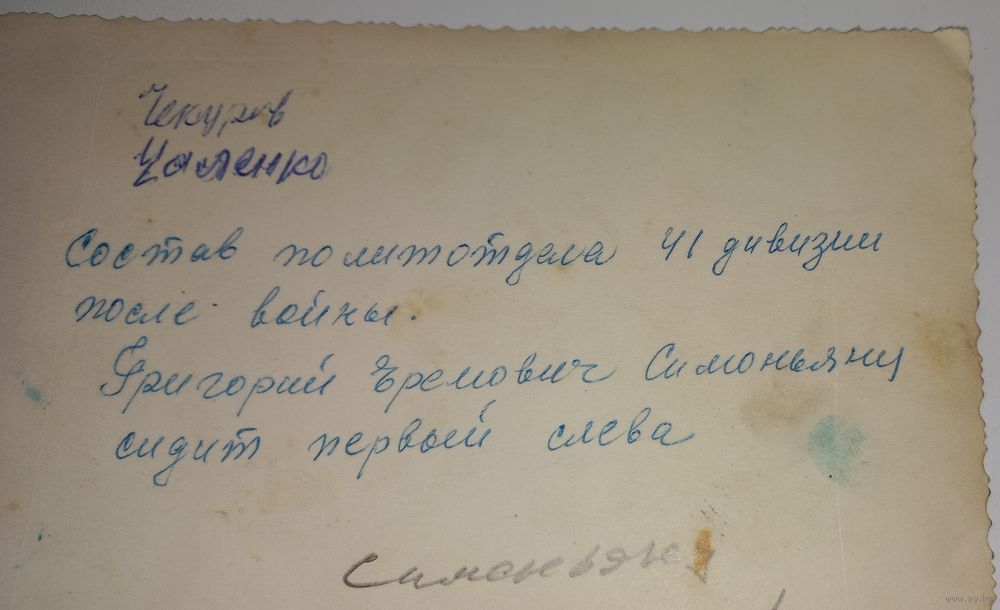 Чекуров
Цаленко
Состав политотдела 41 дивизии
после войны.
Григорий Еремович Симоньянц
сидит первый слева
Симоньянц
www.ay.by